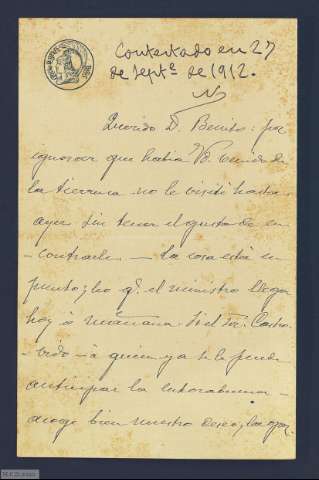 Contestado en 27
de Septe de 1912.
Querido D. Benito: por
ignorar que había Vd. venido de
la tierruca no le visité hasta
ayer sin tener el gusto de en-
-contrarle — La cosa está en
punto y leo q. el ministro llega
hoy ó mañana. Si el Sr. Castro-
-vido — á quien ya se le puede
anticipar la enhorabuena —
acoge bien nuestro deseo,